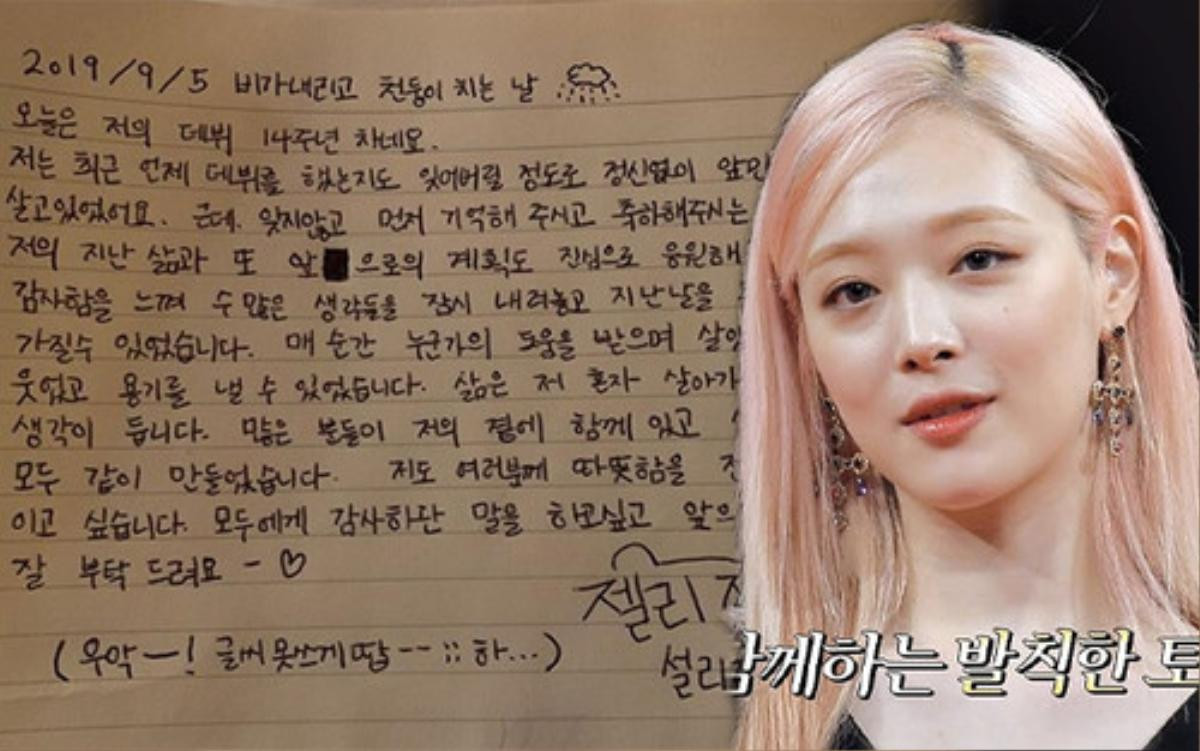 2019/9/5 비가내리고 천둥이 치는 날
오늘은 저의 데뷔 14주년 차네요.
저는 최근 언제 데뷔를 했는지도 잊어버릴 정도로 정신없이 앞만
살고있었어요. 근데. 잊지않고 먼저 기억해 주시고 축하해주시는
저의 지난 삶과 또 앞으로의 계획도 진심으로 응원해
감사함을 느껴 수많은 생각들을 잠시 내려놓고 지난날을
가질수 있었습니다. 매 순간 누군가의 도움을 받으며 살았
웃었고 용기를 낼 수 있었습니다. 삶은 저 혼자 살아가
생각이 듭니다. 많은 분들이 저의 곁에 함께 있고
모두 같이 만들었습니다. 저도 여러분께 따뜻함을
이고 싶습니다. 모두에게 감사하단 말을 하고싶고 앞으
잘 부탁 드려요 - ♡
젤리
(우악ー! 글씨 못쓰게땁-- ;; 하...)
설리
함께하는 발칙한 토